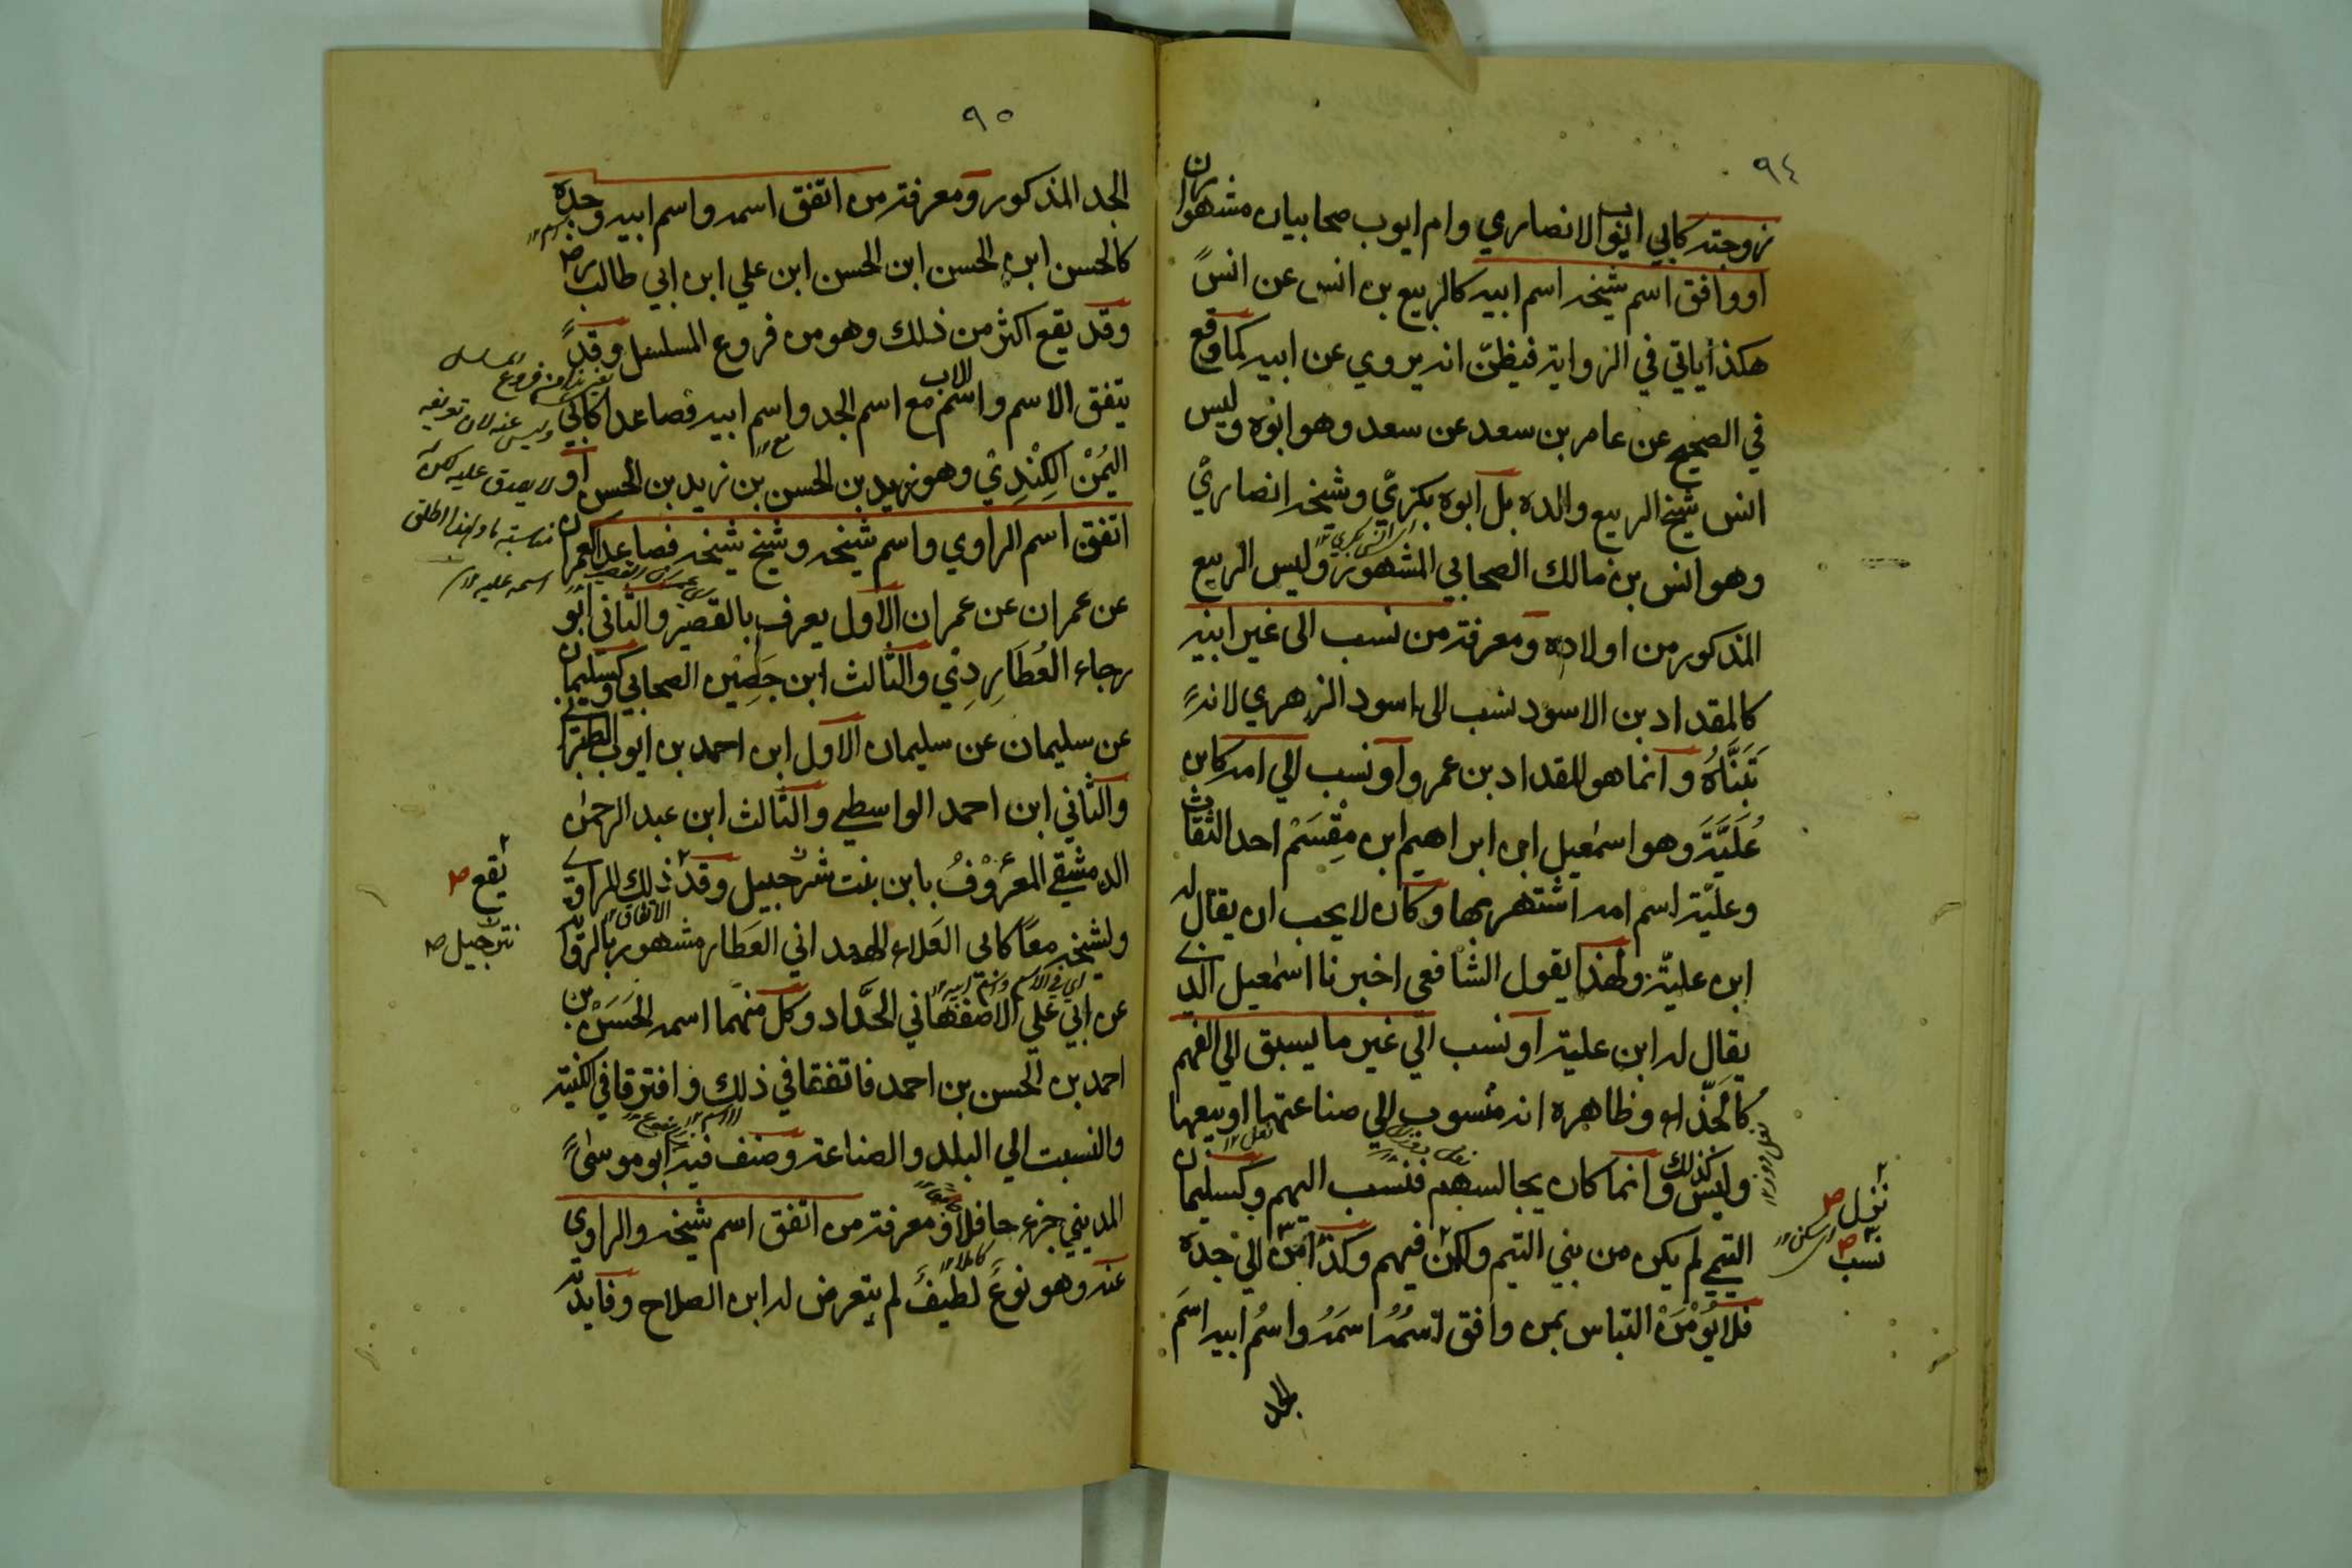 ٩٤
زوجته كابي ايوب الانصاري وام ايوب صحابيان مشهوران
او وافق اسم شيخه اسم ابيه كالربيع بن انس عن انس
هكذا ياتي في الرواية فيظن انه يروي عن ابيه كما وقع
في الصحيح عن عامر بن سعد عن سعد وهو ابوه وليس
انس شيخ الربيع والده بل ابوه بكريّ وشيخه انصاريّ
وهو انس بن مالك الصحابي المشهور وليس الربيع
المذكور من اولاده ومعرفة من نسب الى غير ابيه
كالمقداد بن الاسود نسب الى اسود الزهري لانه
تَبَنَّاهُ وانما هو المقداد بن عمرو او نسب الي امه كابن
عُلَيَّةَ وهو اسمعيل ابن ابراهيم ابن مِقْسَمْ احد الثقات
وعلية اسم امه اشتهر بها وكان لا يحب ان يقال له
ابن علية ولهذا يقول الشافعي اخبرنا اسمعيل الذي
يقال له ابن علية او نسب الي غير ما يسبق الي الفهم
كالحَذّاء وظاهره انه منسوب الي صناعتها او بيعها
وليس كذلك وانما كان يجالسهم فنسب اليهم وكسليمان
التيمي لم يكن من بني التيم ولكن فيهم وكذا من الي جده
فلا يُؤمَنْ التباس بمن وافق اسمُه اسمَه واسمُ ابيه اسمَ
الجد
نزل ص
نسب ص
٩٥
الجد المذكور ومعرفة من اتفق اسمه واسم ابيه وجده
كالحسن ابن الحسن ابن الحسن ابن علي ابن ابي طالب
وقد يقع اكثر من ذلك وهو من فروع المسلسل وقد
يتفق الاسم واسم الاب مع اسم الجد واسم ابيه فصاعدا كابي
اليُمْن الكِنْدِيّ وهو زيد بن الحسن بن زيد بن الحسن او
اتفق اسم الراوي واسم شيخه وشيخ شيخه فصاعدا كعمران
عن عمران عن عمران الاول يعرف بالقصير والثاني ابو
رجاء العُطَارِدي والثالث ابن حصين الصحابي وكسليمان
عن سليمان عن سليمان الاول ابن احمد بن ايوب الطبراني
والثاني ابن احمد الواسطي والثالث ابن عبد الرحمن
الدمشقي المعروفُ بابن بنت شرحبيل وقد ذلك للراوي
ولشيخه معًا كابي العَلاء الهمداني العَطار مشهور بالرواية
عن ابي علي الاصفهاني الحَدَّاد وكل منهما اسمه الحَسَن بن
احمد بن الحسن بن احمد فاتفقا في ذلك وافترقا في الكنية
والنسبت الي البلد والصناعة وصنف فيه ابو موسى
المديني جزء حافلا ومعرفة من اتفق اسم شيخه والراوي
عنه وهو نوعٌ لطيفٌ لم يتعرض له ابن الصلاح وفايدته
يقع ص